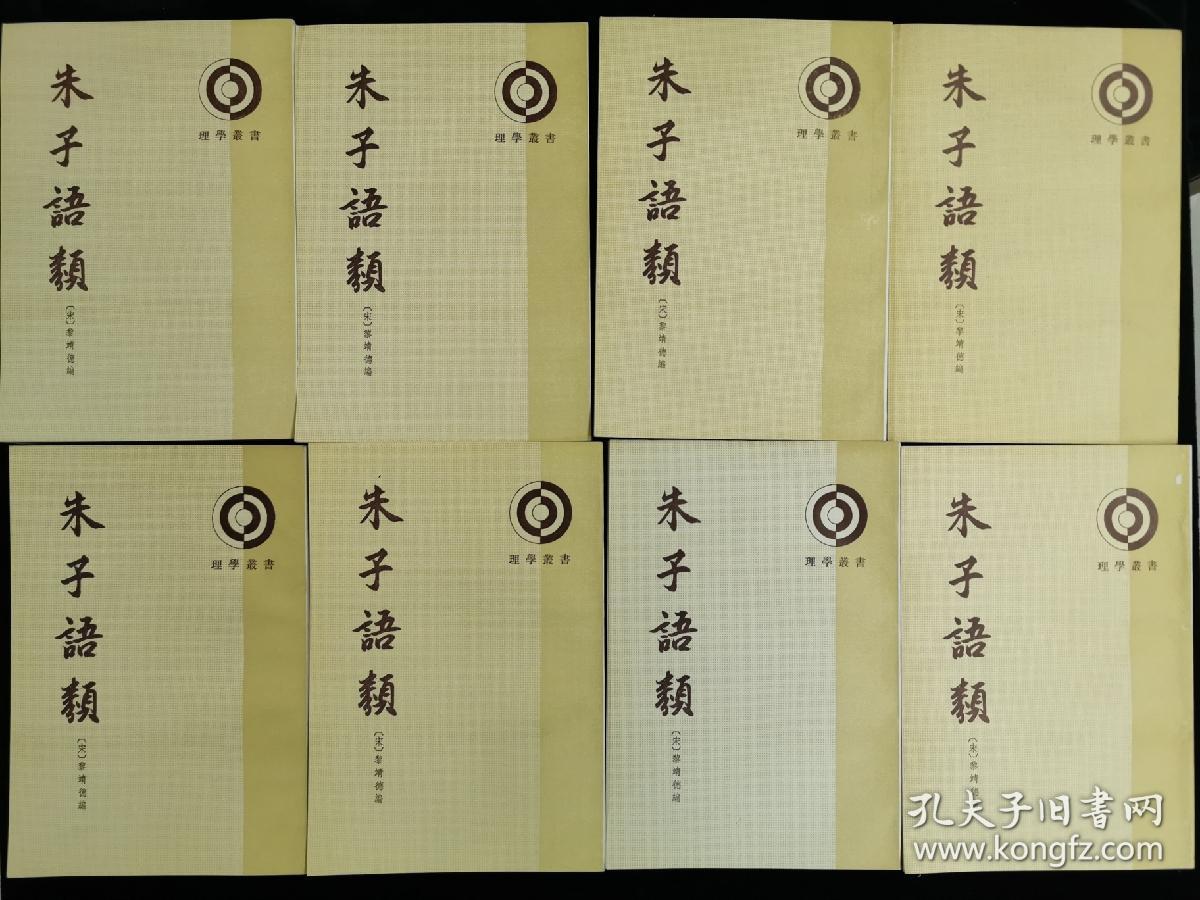 朱子語類
理學叢書
〔宋〕黎靖德編
朱子語類
理學叢書
〔宋〕黎靖德編
朱子語類
理學叢書
〔宋〕黎靖德編
朱子語類
理學叢書
〔宋〕黎靖德編
朱子語類
理學叢書
〔宋〕黎靖德編
朱子語類
理學叢書
〔宋〕黎靖德編
朱子語類
理學叢書
〔宋〕黎靖德編
朱子語類
理學叢書
〔宋〕黎靖德
孔夫子旧书网
www.kongfz.com